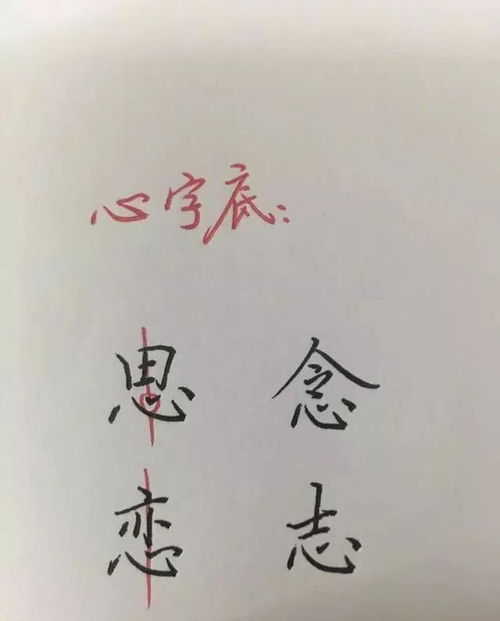 心字底：
思 念
恋 志